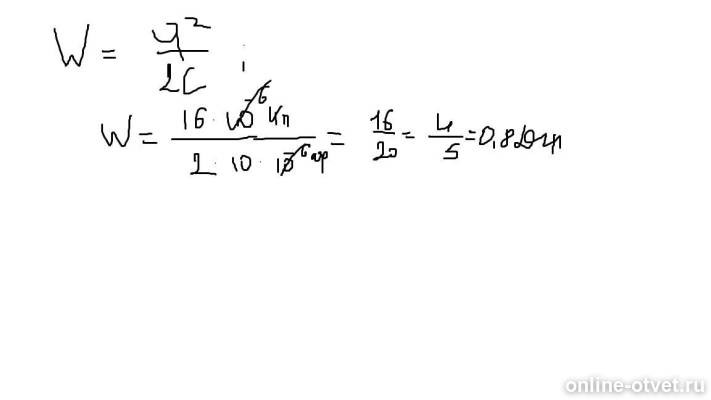 W = q² / 2C ;
W = 16 · 10⁻⁶ Кл / 2 · 10 · 10⁻⁶ = 16/20 = 4/5 = 0,8 Дж
online-otvet.ru